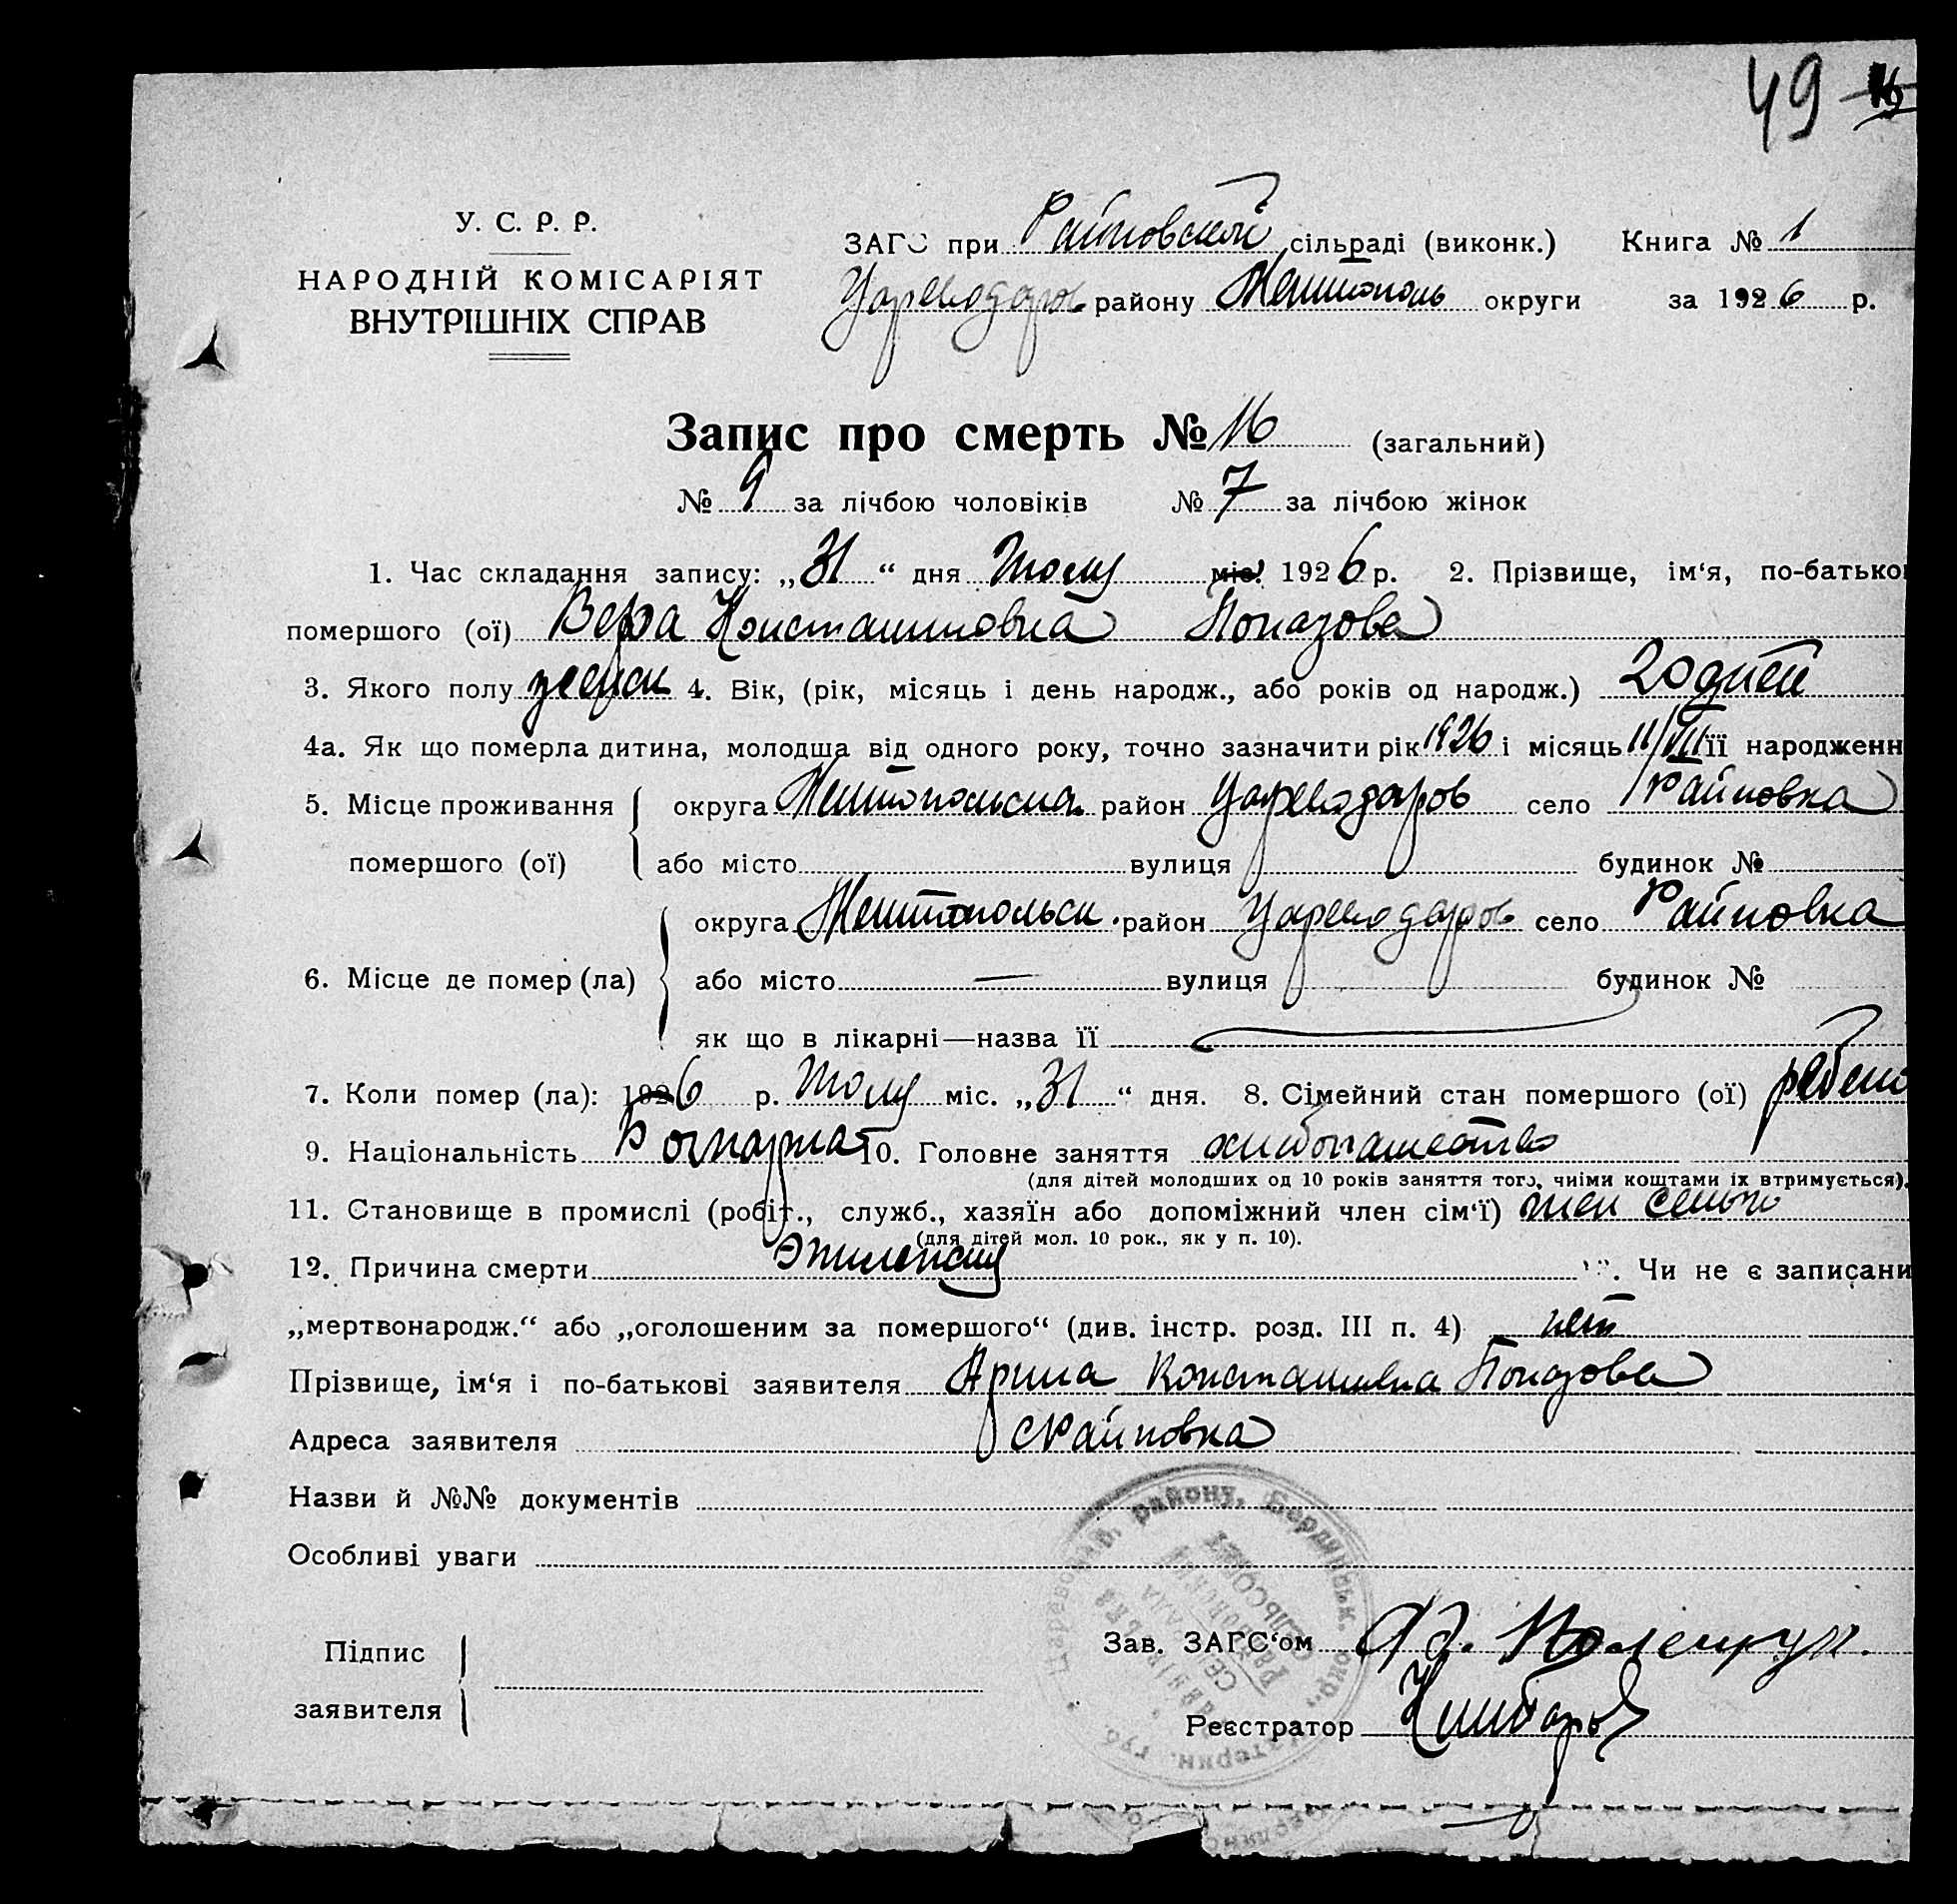 49 16
У. С. Р. Р.
НАРОДНІЙ КОМІСАРІЯТ
ВНУТРІШНІХ СПРАВ
ЗАГС при Райновской сільраді (виконк.) Книга № 1
Цареводаров району Мелитополь округи за 1926 р.
Запис про смерть № 16 (загальний)
№ 9 за лічбою чоловіків № 7 за лічбою жінок
1. Час складання запису: „31“ дня Июля міс. 1926 р. 2. Прізвище, ім‘я, по-батько
помершого (ої) Вера Константиновна Попазова
3. Якого полу женск 4. Вік, (рік, місяць і день народж., або років од народж.) 20 дней
4а. Як що померла дитина, молодша від одного року, точно зазначити рік 1926 і місяць 11/VII її народженн
5. Місце проживання округа Мелитопольска район Цареводаров село Райновка
помершого (ої) або місто вулиця будинок №
округа Мелитопольск. район Цареводаров село Райновка
6. Місце де помер (ла) або місто — вулиця будинок №
як що в лікарні—назва її
7. Коли помер (ла): 1926 р. Июля міс. „31“ дня. 8. Сімейний стан помершого (ої) ребено
9. Національність Болгарка 10. Головне заняття хлибопашество
(для дітей молодших од 10 років заняття того, чиїми коштами їх втримується).
11. Становище в промислі (робіт., служб., хазяїн або допоміжний член сім‘ї) член
(для дітей мол. 10 рок., як у п. 10).
12. Причина смерти Эпилепсия Чи не є записани
„мертвонародж.“ або „оголошеним за помершого“ (див. інстр. розд. III п. 4) нет
Прізвище, ім‘я і по-батькові заявителя Арина Константиовна Попазова
Адреса заявителя с Райновка
Назви й №№ документів
Особливі уваги
Підпис
заявителя
Зав. ЗАГС‘ом
Реєстратор
району, Бердянськ. окр.,